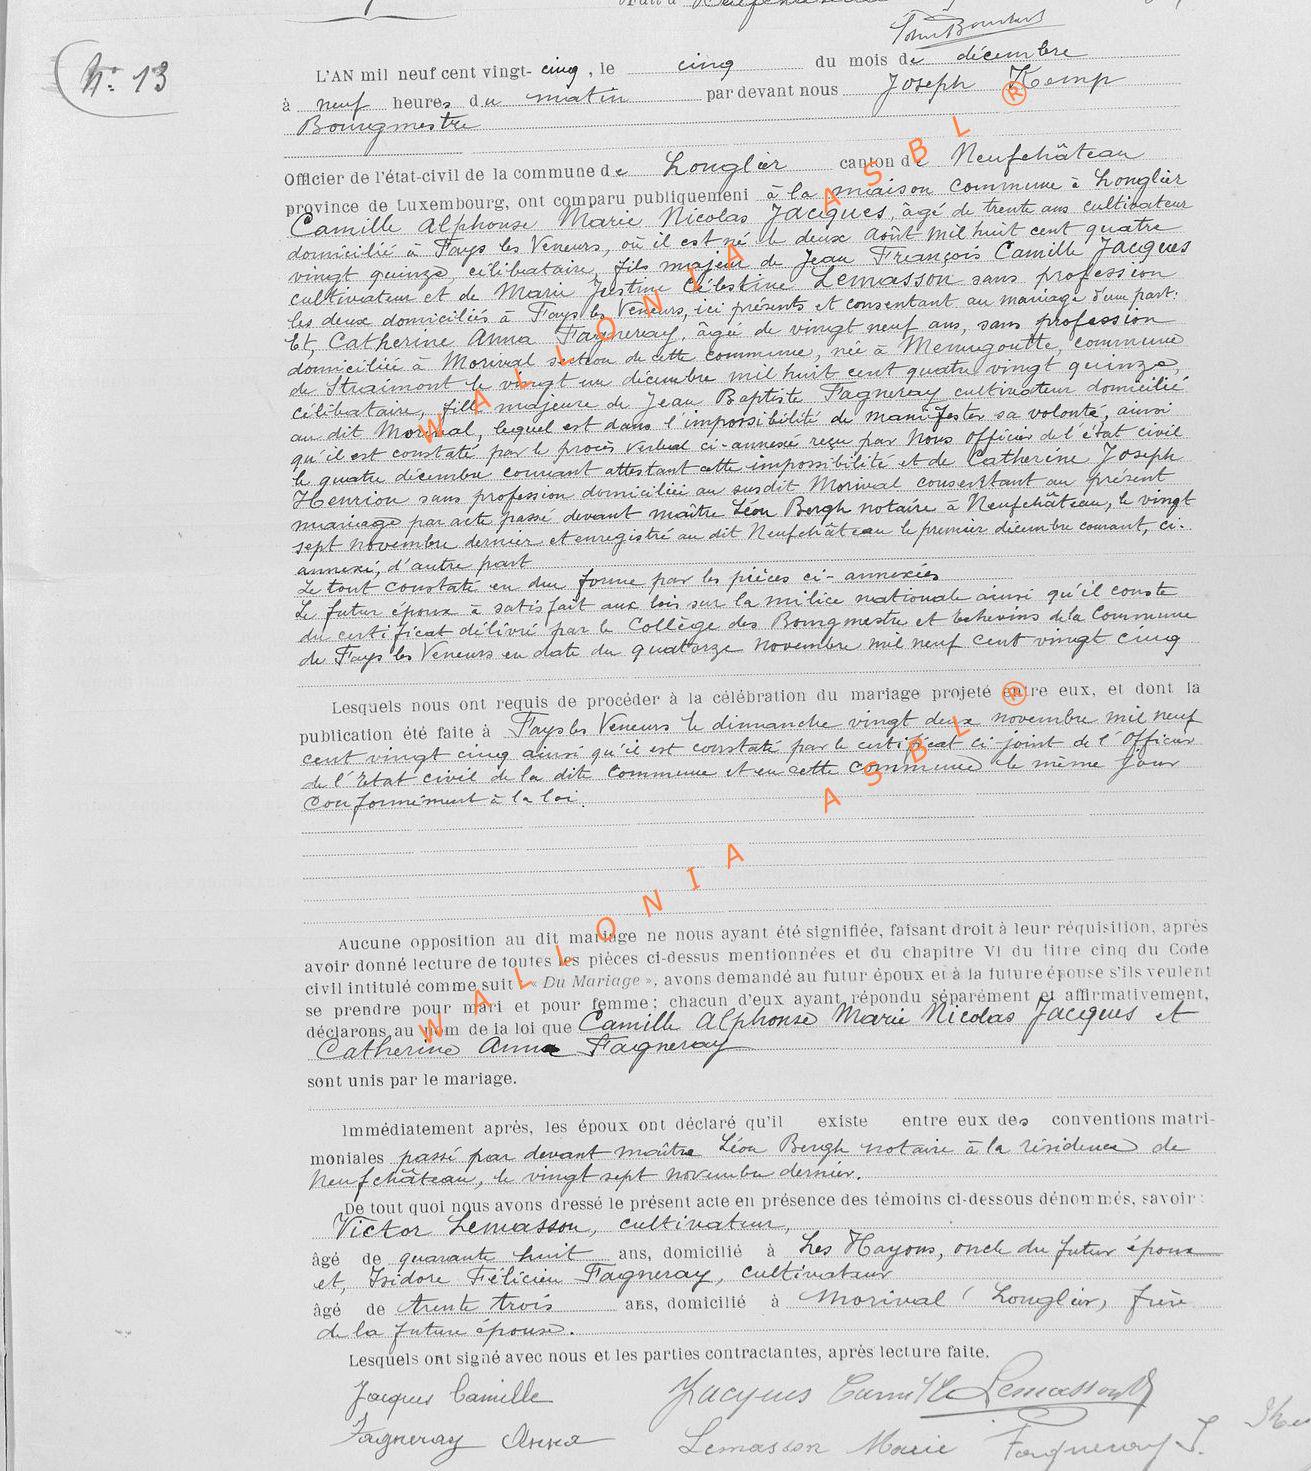 N° 13
L'AN mil neuf cent vingt- cinq, le cinq du mois de décembre
à neuf heures du matin par devant nous Joseph Kemp
Bourgmestre
Officier de l'état-civil de la commune de Longlier canton de Neufchâteau
province de Luxembourg, ont comparu publiquement à la maison commune à Longlier
Camille Alphonse Marie Nicolas Jacques, âgé de trente ans cultivateur
domicilié à Fays les Veneurs, où il est né le deux Août mil huit cent quatre
vingt quinze, célibataire, fils majeur de Jean François Camille Jacques
cultivateur et de Marie Justine Célestine Lemasson sans profession
les deux domiciliés à Fays les Veneurs, ici présents et consentant au mariage d'une part.
Et, Catherine Anna Fagneray, âgée de vingt neuf ans, sans profession
domiciliée à Morival section de cette commune, née à Menugoutte, commune
de Straimont le vingt un décembre mil huit cent quatre vingt quinze,
célibataire, fille majeure de Jean Baptiste Fagneray cultivateur domicilié
au dit Morival, lequel est dans l'impossibilité de manifester sa volonté, ainsi
qu'il est constaté par le procès verbal ci-annexé reçu par Nous Officier de l'état civil
le quatre décembre courant attestant cette impossibilité et de Catherine Joseph
Henrion sans profession domiciliée au susdit Morival consentant au présent
mariage par acte passé devant maître Léon Bergh notaire à Neufchâteau, le vingt
sept novembre dernier et enregistré au dit Neufchâteau le premier décembre courant, ci-
annexé, d'autre part
Le tout constaté en due forme par les pièces ci-annexées
Le futur époux a satisfait aux lois sur la milice nationale ainsi qu'il conste
du certificat délivré par le Collège des Bourgmestre et Echevins de la Commune
de Fays les Veneurs en date du quatorze novembre mil neuf cent vingt cinq
Lesquels nous ont requis de procéder à la célébration du mariage projeté entre eux, et dont la
publication été faite à Fays les Veneurs le dimanche vingt deux novembre mil neuf
cent vingt cinq ainsi qu'il est constaté par le certificat ci-joint de l'Officier
de l'Etat civil de la dite Commune et en cette commune le même jour
conformément à la loi.
Aucune opposition au dit mariage ne nous ayant été signifiée, faisant droit à leur réquisition, après
avoir donné lecture de toutes les pièces ci-dessus mentionnées et du chapitre VI du titre cinq du Code
civil intitulé comme suit : « Du Mariage », avons demandé au futur époux et à la future épouse s'ils veulent
se prendre pour mari et pour femme ; chacun d'eux ayant répondu séparément et affirmativement,
déclarons au nom de la loi que Camille Alphonse Marie Nicolas Jacques et
Catherine Anna Fagneray
sont unis par le mariage.
Immédiatement après, les époux ont déclaré qu'il existe entre eux des conventions matri-
moniales passé par devant maître Léon Bergh notaire à la résidence de
Neufchâteau, le vingt sept novembre dernier.
De tout quoi nous avons dressé le présent acte en présence des témoins ci-dessous dénommés, savoir :
Victor Lemasson, cultivateur,
âgé de quarante huit ans, domicilié à Les Hayons, oncle du futur époux
et, Isidore Félicien Fagneray, cultivateur
âgé de trente trois ans, domicilié à Morival (Longlier, frère
de la future épouse.
Lesquels ont signé avec nous et les parties contractantes, après lecture faite.
Jacques Camille Jacques Camille Lemasson V
Fagneray Anna Lemasson Marie Fagneray I.
WALLONIA ASBL ®
WALLONIA ASBL ®